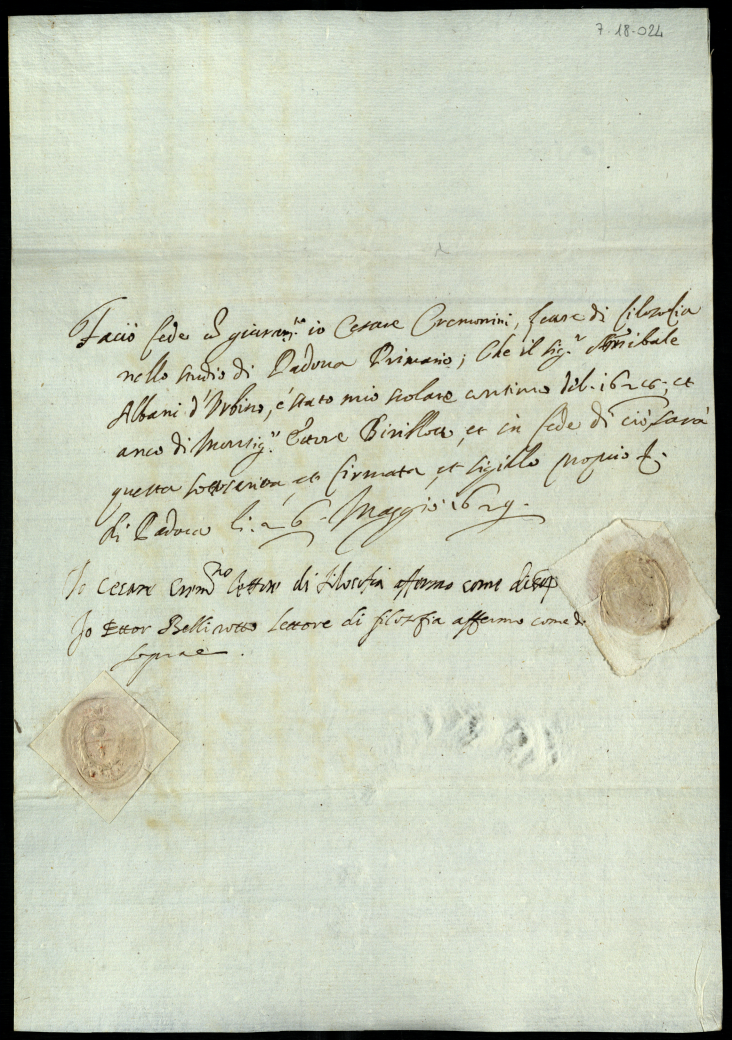 7-18-024
Faccio fede co giuram.to io Cesare Cremonini, di filosofia
nello studio di Padova Primario; che il sig.r Annibale
Albani d'Urbino, é stato mio scolare continuo del. 1626. et
anco di Monsig.r Ettore et in fede di ció sará
questa sottoscritta, et firmata, et sigillo proprio
di Padova li. 26. Maggio. 1629.
Io Cesare Crem.no lettore di filosofia affermo come di sop
Io Ettor Bellirotto Lettore di filosofia affermo come di
soprae.